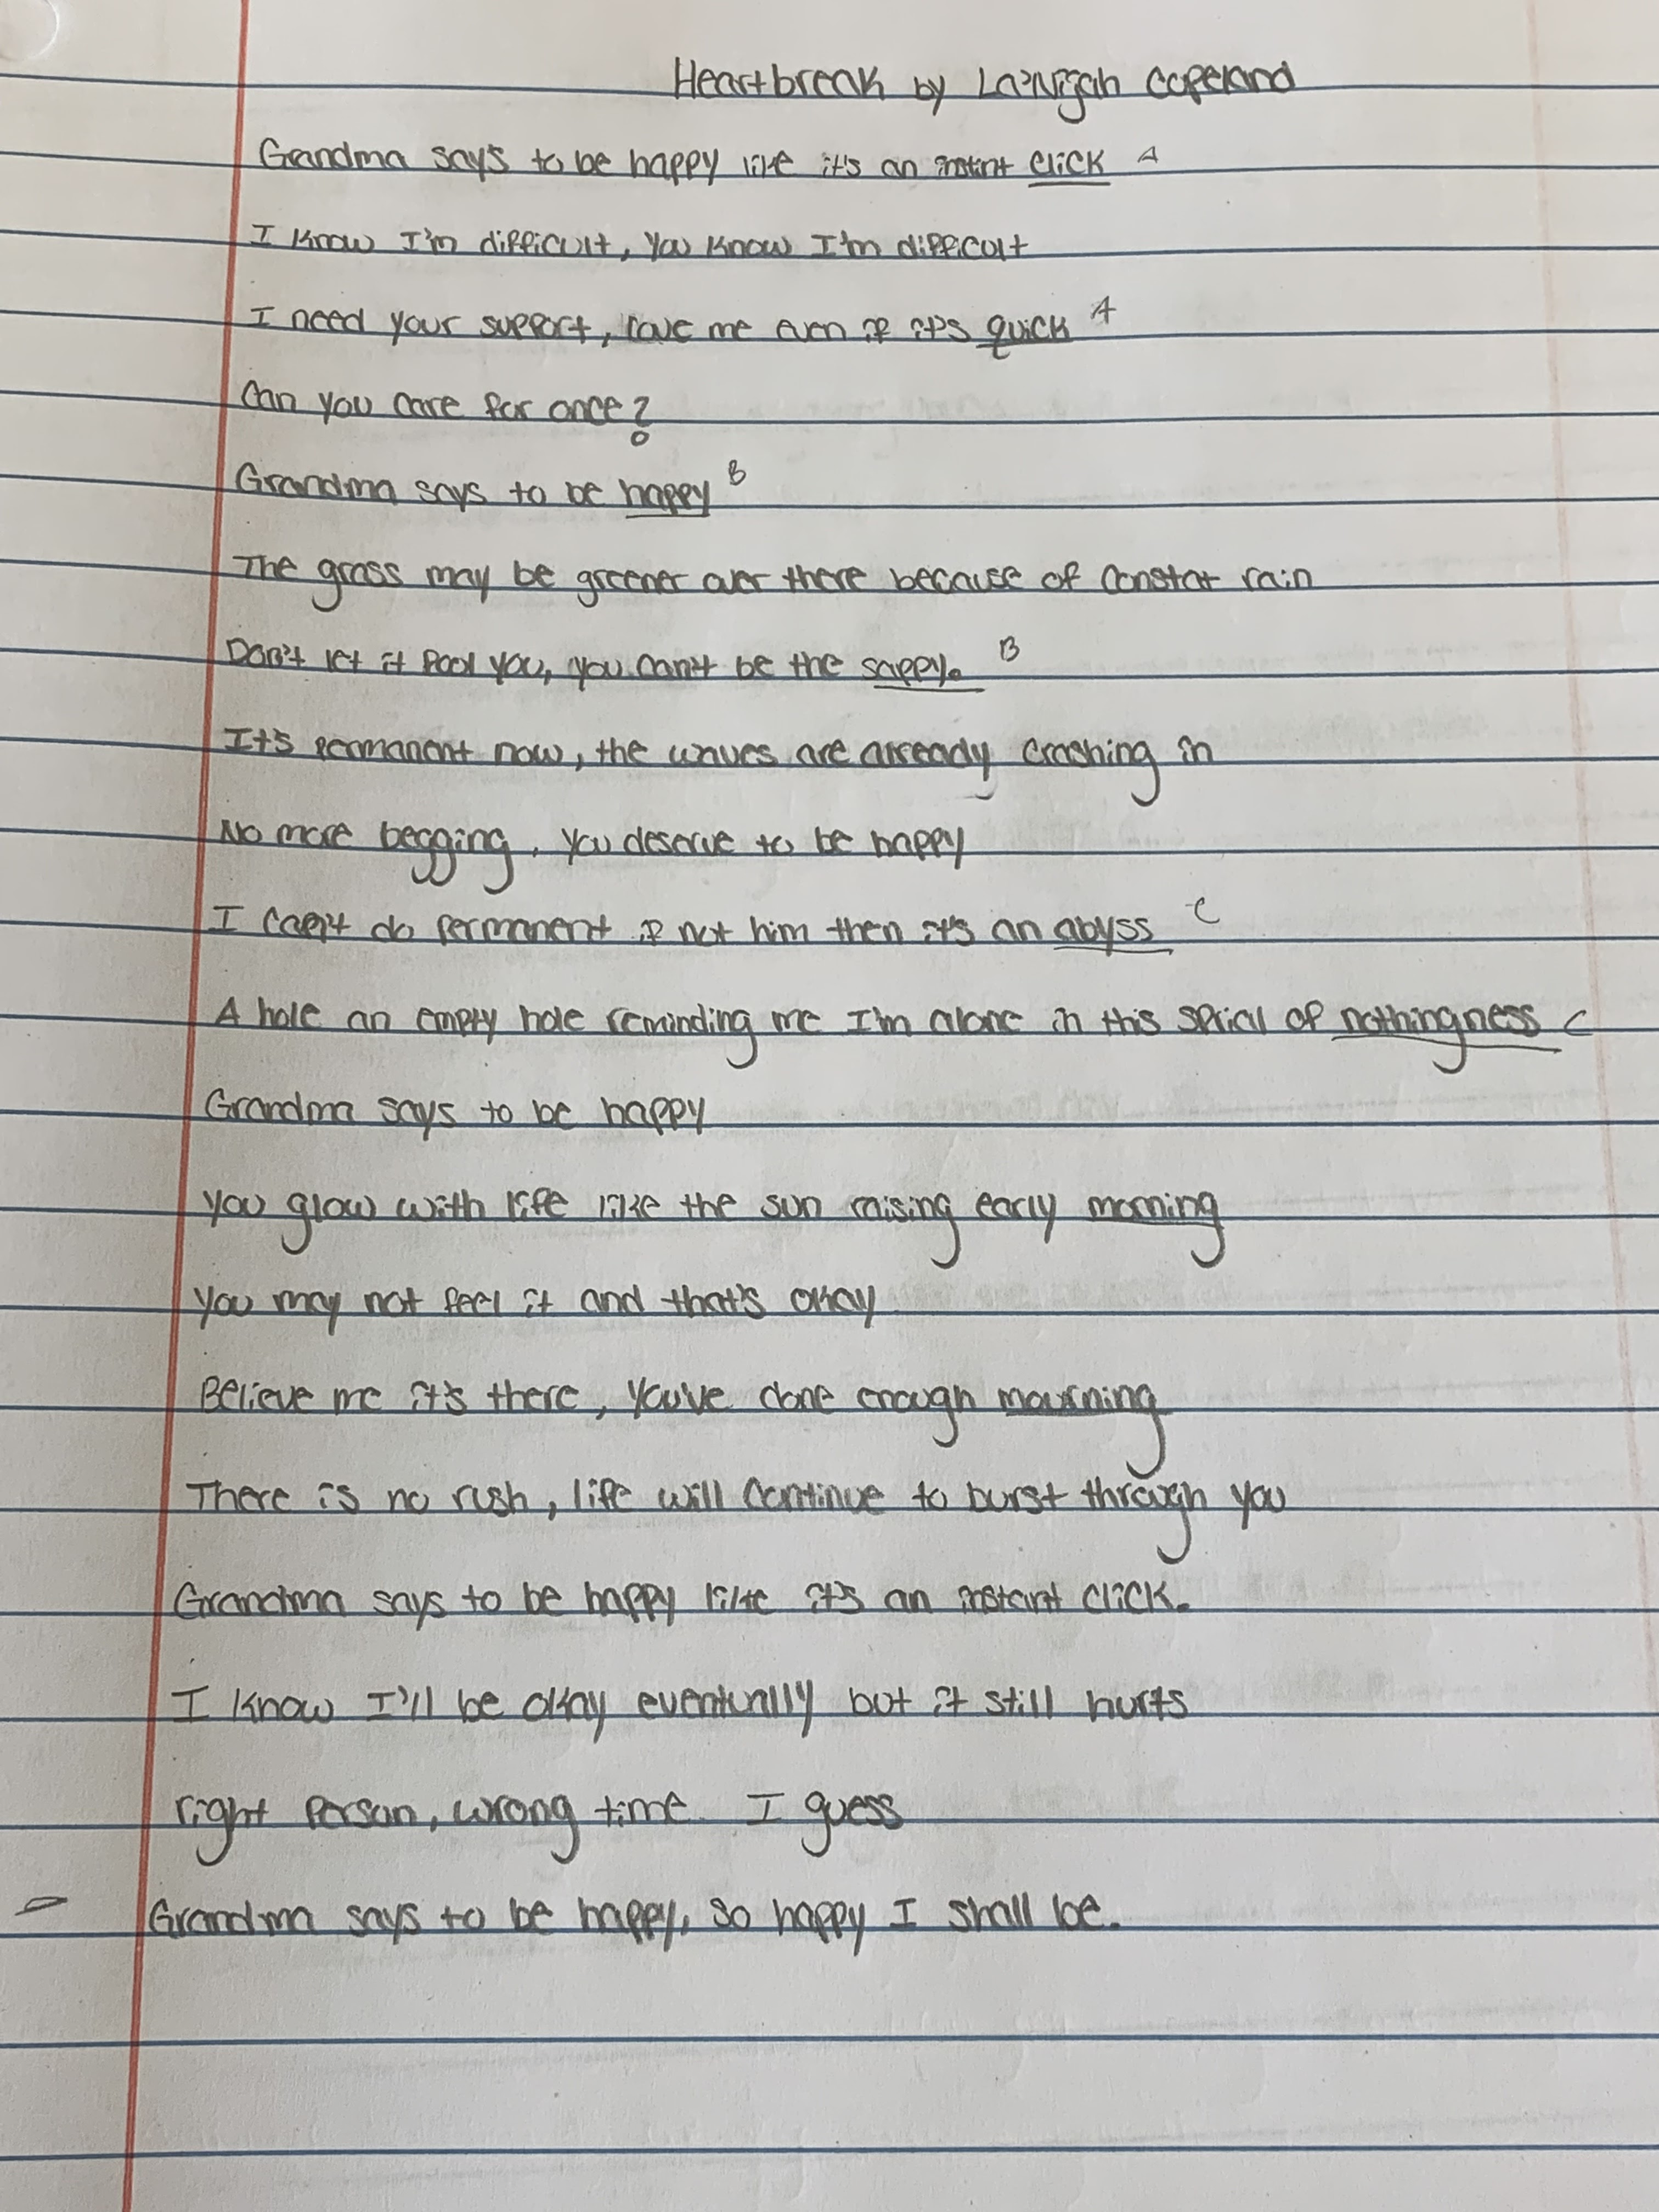 Heartbreak by La'Nijah Copeland
Grandma say's to be happy like it's an instint click A
I know I'm difficult, you know I'm difficult
I need your support, love me even if it's quick A
Can you care for once?
Grandma says to be happy B
The grass may be greener over there because of constat rain
Don't let it fool you, you can't be the sappy. B
It's permanent now, the waves are already crashing in
No more begging, you deserve to be happy
I can't do permanent if not him then it's an abyss C
A hole an empty hole reminding me I'm alone in this sprial of nothingness C
Grandma says to be happy
You glow with life like the sun raising early morning
You may not feel it and that's okay
Believe me it's there, you've done enough mourning
There is no rush, life will continue to burst through you
Grandma says to be happy like it's an instant click.
I know I'll be okay eventually but it still hurts
right person, wrong time. I guess
Grandma says to be happy, so happy I shall be.